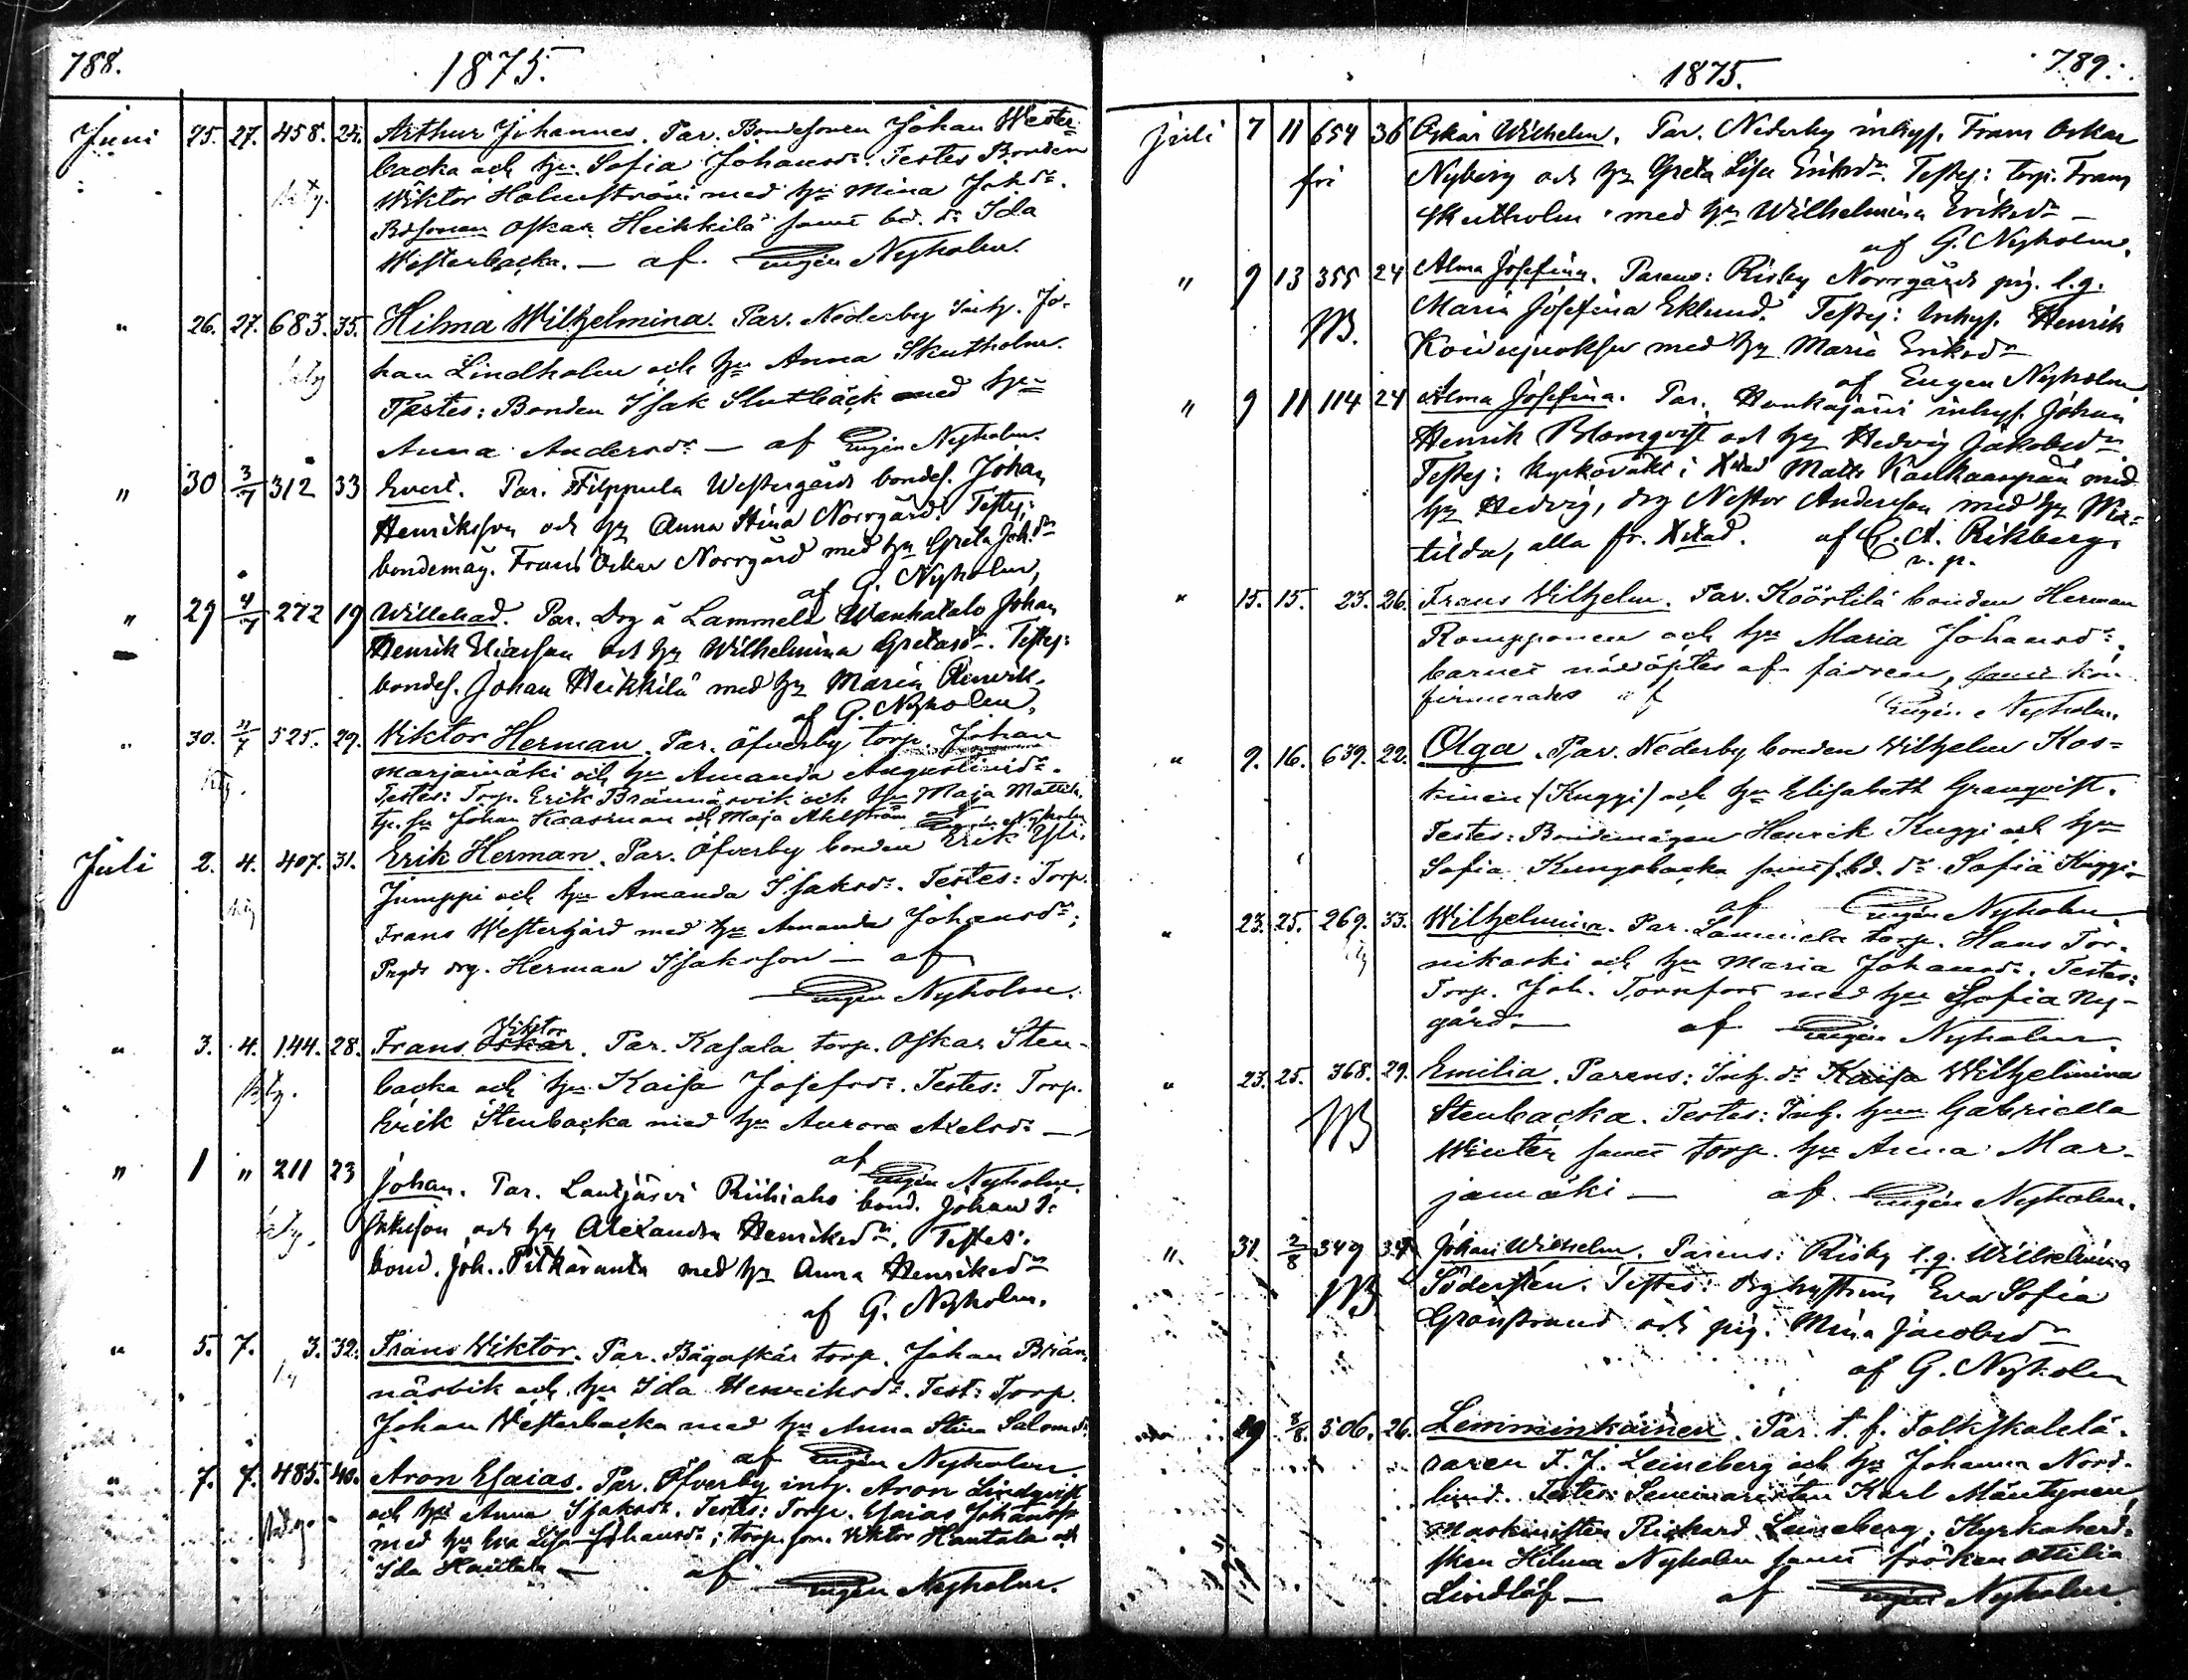 788.
1875.
Juni 25. 27. 458. 24. Arthur Johannes. Par. Bondesonen Johan Wester-
backa och hu Sofia Johansdr. Testes Bonden
Wiktor Holmström med hu Mina Johdr.
Bdsonen Oskar Heikkilä samt bd. dr Ida
Westerbacka. — af Eugén Nyholm.
" 26. 27. 683. 35. Hilma Wilhelmina. Par. Nederby Inh. Jo-
han Lindholm och hu Anna Skutholm.
Testes: Bonden Isak Slutbäck med hu
Anna Andersdr — af Eugén Nyholm.
" 30 3/7 312 33 Evert. Par. Filppula Westergård bondes. Johan
Henriksson och hu Anna Stina Norrgård. Testes:
bondemåg. Frans Oskar Norrgård med hu Greta Joh.dr
af G. Nyholm,
" 29 4/7 272 19 Willehad. Par. Drg å Lammela Wanhatalo Johan
Henrik Eliasson och hu Wilhelmina Gretasdr. Testes:
bondes. Johan Heikkilä med hu Maria Henrik.
af G. Nyholm,
" 30. 4/7 525. 29. Viktor Herman. Par. Öfverby torp. Johan
Marjamäki och hu Amanda Augustinidr.
Testes: Torp. Erik Brännäsvik och hu Maja Mattsdr.
tp. sn Johan Kaasman och Maja Ahlström af Eugén Nyholm
Juli 2. 4. 407. 31. Erik Herman. Par. Öfverby bonden Erik
Jumppi och hu Amanda Isaksdr. Testes: Torp.
Frans Westergård med hu Amanda Johansdr;
drg. Herman Isaksson — af
Eugén Nyholm.
" 3. 4. 144. 28. Frans Oskar Viktor. Par. Kasala torp. Oskar Sten-
backa och hu Kaisa Josefsdr. Testes: Torp.
Erik Stenbacka med hu Aurora Axelsdr —
af Eugén Nyholm.
" 1 " 211 23 Johan. Par. Lautjärvi Riihiaho bond. Johan
Eriksson och hu Alexandra Henriksdr. Testes:
bond. Joh. Pitkäranta med hu Anna Henriksdr
af G. Nyholm.
" 5. 7. 3. 32. Frans Wiktor. Par. Bågaskär torp. Johan Brän-
näsvik och hu Ida Henriksdr. Test: Torp.
Johan Westerbacka med hu Anna Stina Salomdr.
af Eugén Nyholm
" 7. 7. 485. 40. Aron Esaias. Par. Öfverby inh. Aron Lindqvist
och hu Anna Isaksdr. Testes: Torp. Esaias Johansson
med hu Eva Lisa Johansdr; torp. son. Viktor Hautala och
Ida Hautala — af Eugén Nyholm.
1875.
789.
Juli 7 11 654 36 Oskar Wilhelm. Par. Nederby inhys. Frans Oskar
fri Nyberg och hu Greta Lisa Eriksdr. Testes: torp. Frans
Skutholm med hu Wilhelmina Eriksdr —
af G. Nyholm.
" 9 13 355 24 Alma Josefina. Parens: Risby Norrgård pig. l.g.
Maria Josefina Eklund. Testes: Inhys. Henrik
Koivujuoksu med hu Maria Eriksdr
af Eugen Nyholm
" 9 11 114 24 Alma Josefina. Par. Honkajärvi inhys. Johan
Henrik Blomqvist och hu Hedvig Jakobsdr.
Testes: kyrkovakt i Xstad Matts Kankaanpää med
hu Hedvig, drg Nestor Anderson med hu Ma-
tilda, alla fr. Xstad. af C. A. Rikberg.
v. p.
" 15. 15. 23. 26. Frans Wilhelm. Par. Köörtilä bonden Herman
Rompponen och hu Maria Johansdr.
barnet nöddöptes af fadren, samt kon-
firmerades af Eugén Nyholm
" 9. 16. 639. 22. Olga. Par. Nederby bonden Wilhelm Kos-
kinen (Kuggi) och hu Elisabeth Granqvist.
Testes: Bondemågen Henrik Kuggi och hu
Sofia Kungsbacka samt bd. dr Sofia Kuggi.
af Eugén Nyholm.
" 23. 25. 269. 33. Wilhelmina. Par. Lammela torp. Hans Tor-
nikoski och hu Maria Johansdr. Testes:
Torp. Joh. Tornfors med hu Sofia Ny-
gård — af Eugén Nyholm.
" 23. 25. 368. 29. Emilia. Parens: Inh. dr Kaisa Wilhelmina
Stenbacka. Testes: Inh. hun Gabriella
Winter samt torp. hu Anna Mar-
jamäki — af Eugén Nyholm.
" 31. 2/8 349 34 Johan Wilhelm. Parens: Risby l.g. Wilhelmina
Söderstén. Testes: drghustrun Eva Sofia
Grönstrand och pig. Mina Jacobsdr
af G. Nyholm
29 8/8. 506. 26. Lemminkäinen. Par. t. f. Folkskolelä-
raren F. J. Leineberg och hu Johanna Nord-
lund. Testes: Seminaristen Karl Mäntynen,
maskinisten Rickard Leineberg, Kyrkoherd-
skan Hilma Nyholm samt fröken Ottilia
Lindlöf — af Eugén Nyholm.